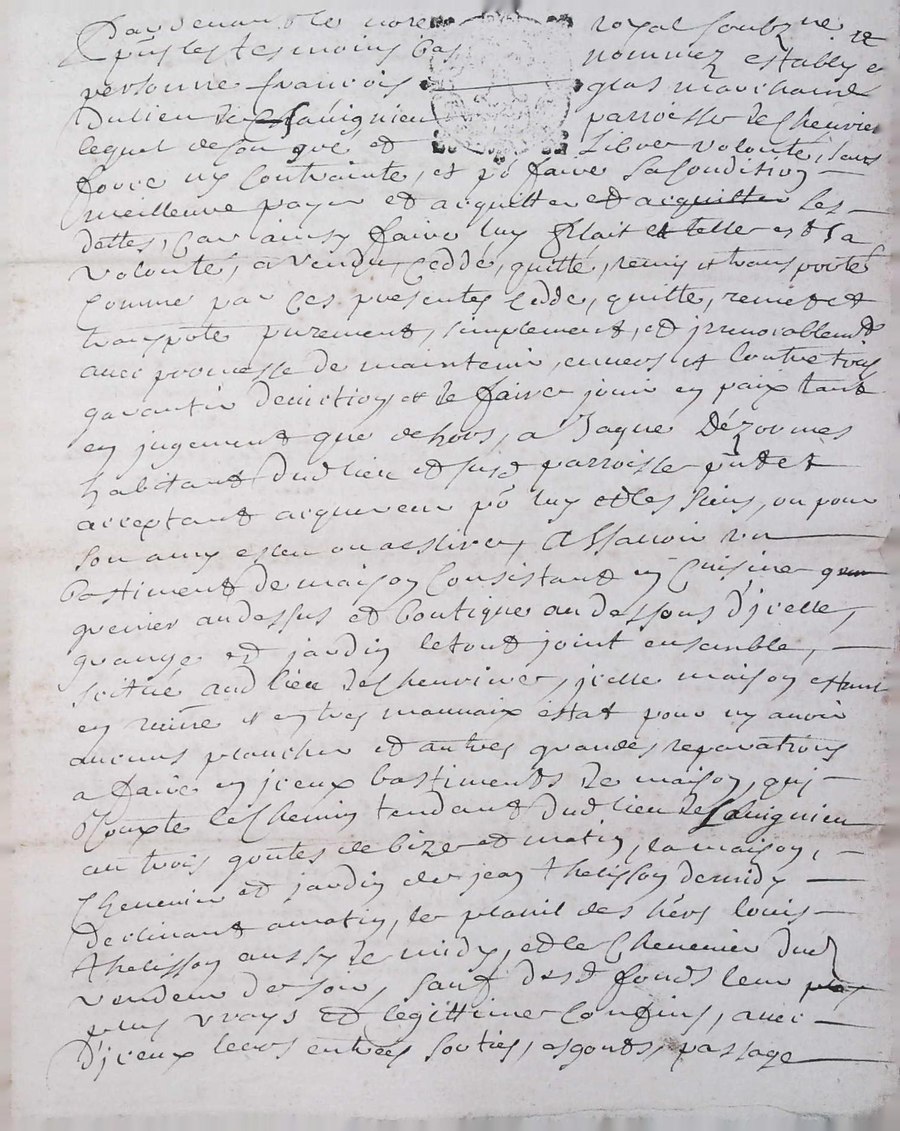 Pardevant le nore royal soubzne
pnt les tesmoins bas nommez estably e
personne françois gras marchand
du lieu de parroisse de Chevrier
lequel de son gré et Libre volonté, sans
force ny contrainte, et po faire sa condition
meilleure payer et acquitter et acquitter ses
dettes, car ainsy faire luy plait et telle est sa
volonté, a vendu, cedde, quitte, remis et transporte
comme par ces presentes cedde, quitte, remet et
transpote purement, simplement, et irrevocablemt
avec promesse de maintenir, envers et contre tous
garantir deviction et de faire jouir en paix tant
en jugement que dehors, a Jaque
habitant dud lieu et susd parroisse pnt et
acceptant acquereur po luy et les siens, ou pour
son amy esleu ou a eslire, Assavoir un
bastiment de maison consistant en cuisine
grenier au dessus et boutique au dessous d'jcelle,
grange et jardin le tout joint ensemble,
scitué aud lieu de jcelle maison estant
en ruine et en tres mauvaix estat pour ny avoir
aucuns plancher et autres grandes reparations
a faire en jceux bastiments de maison, qui
Jouxte le chemin tendant dud lieu de
au trois goutes de bize et matin, la maison,
Chenevier et jardin de jean thelisson de midy
declinant a matin, le plassil des hers louis
thelisson aussy de midy, et le Chenevier dud
vendeur de soir, sauf desd fonds leur
plus vrays et legittimes confins, avec
d'jceux leurs entrées sorties, esgouts, passage